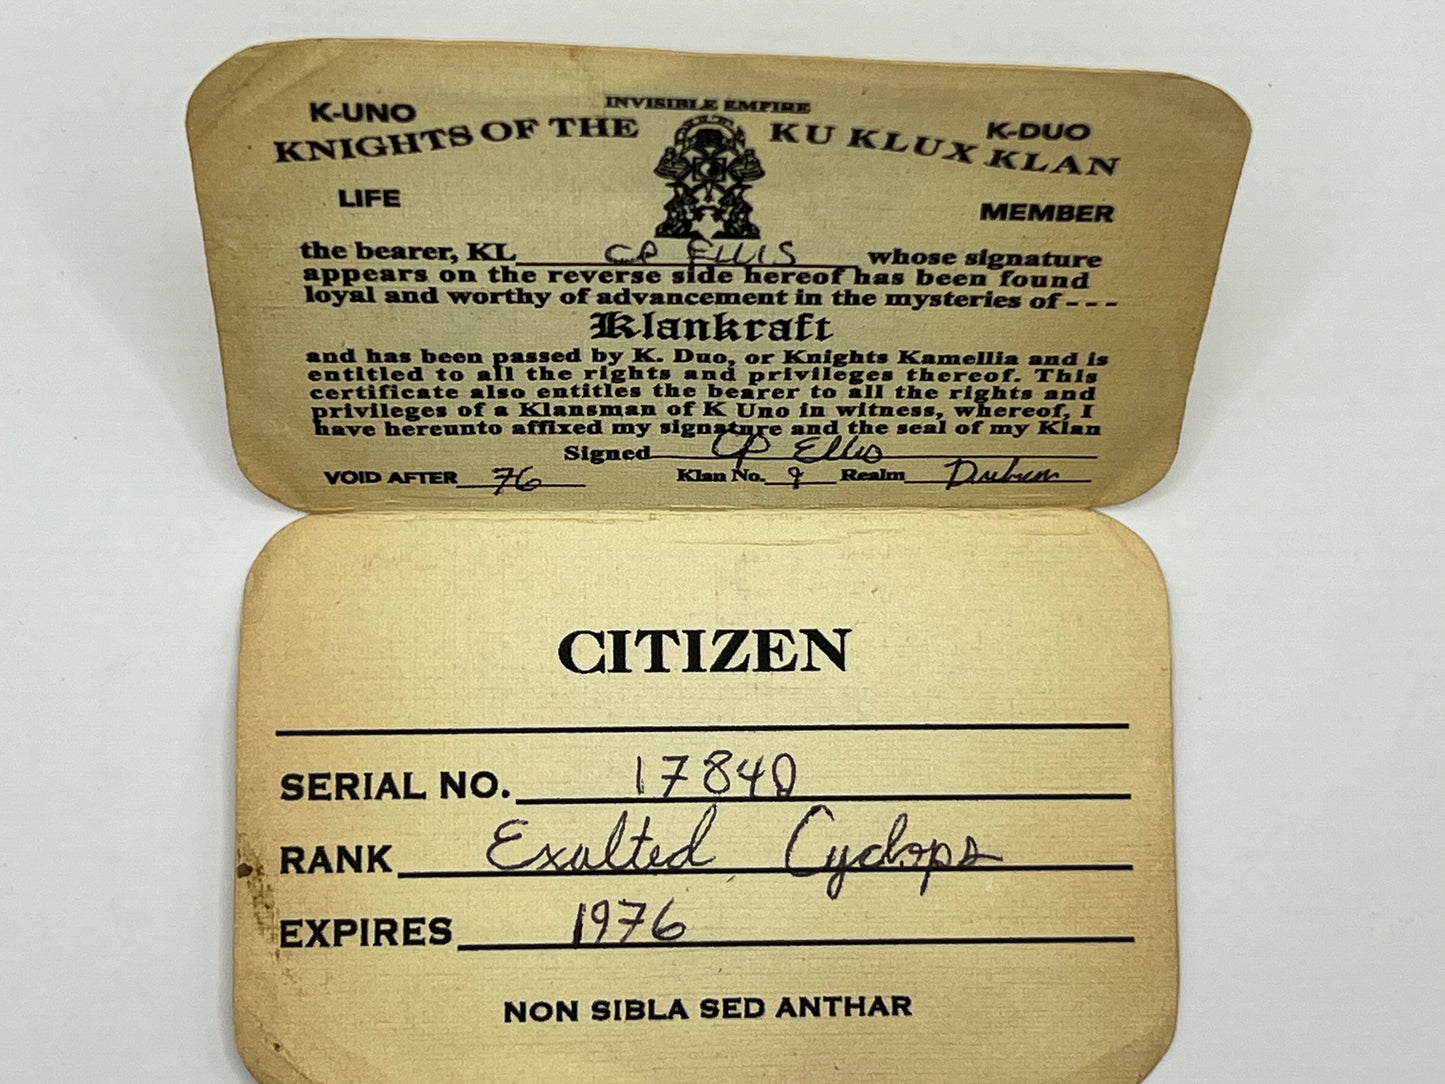 INVISIBLE EMPIRE
K-UNO K-DUO
KNIGHTS OF THE KU KLUX KLAN
LIFE MEMBER
the bearer, KL CP ELLIS whose signature
appears on the reverse side hereof has been found
loyal and worthy of advancement in the mysteries of - - -
Klankraft
and has been passed by K. Duo, or Knights Kamellia and is
entitled to all the rights and privileges thereof. This
certificate also entitles the bearer to all the rights and
privileges of a Klansman of K Uno in witness, whereof, I
have hereunto affixed my signature and the seal of my Klan
Signed CP Ellis
VOID AFTER 76 Klan No. 9 Realm Durham
CITIZEN
SERIAL NO. 17840
RANK Exalted Cyclops
EXPIRES 1976
NON SIBLA SED ANTHAR